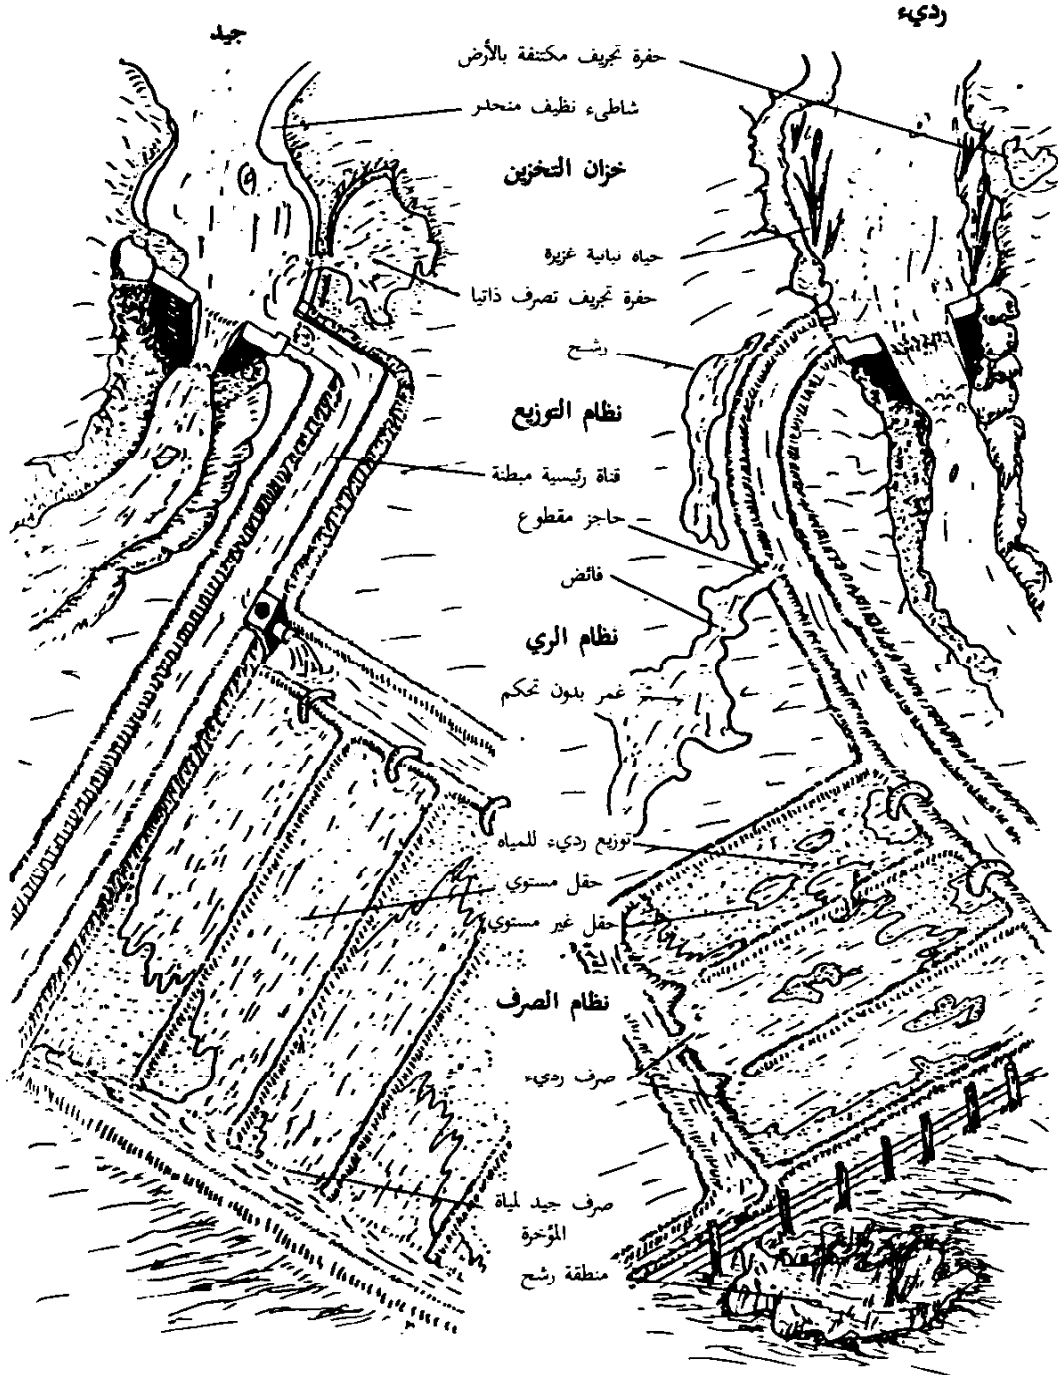 رديء
جيد
حفرة تجريف مكتنفة بالأرض
شاطىء نظيف منحدر
خزان التخزين
حياه نباتية غزيرة
حفرة تجريف تصرف ذاتيا
رشح
نظام التوزيع
قناة رئيسية مبطنة
حاجز مقطوع
فائض
نظام الري
غمر بدون تحكم
توزيع رديء للمياه
حقل مستوي
حقل غير مستوي
نظام الصرف
صرف رديء
صرف جيد لمياة
المؤخرة
منطقة رشح